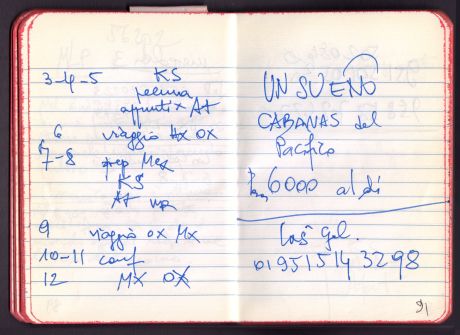 3-4-5 KS
appunti x AT
6 viaggio AX OX
7-8 prep Mex
KS
AT
9 viaggio OX MX
10-11 conf
12 MX OX
UN SUEÑO
CABANAS del
Pacifico
6000 al dì
Gel.
01 951 514 3298
91